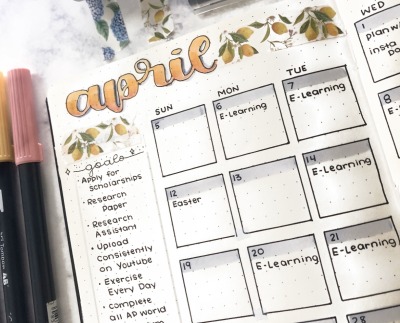 april
WED
SUN
MON
TUE
1
5
6
E-Learning
7
E-Learning
8
goals
Apply for
scholarships
Research
Paper
Research
Assistant
Upload
Consistently
on Youtube
Exercise
Every Day
complete
all AP world
12
Easter
13
14
E-Learning
19
20
E-Learning
21
E-Learning
28